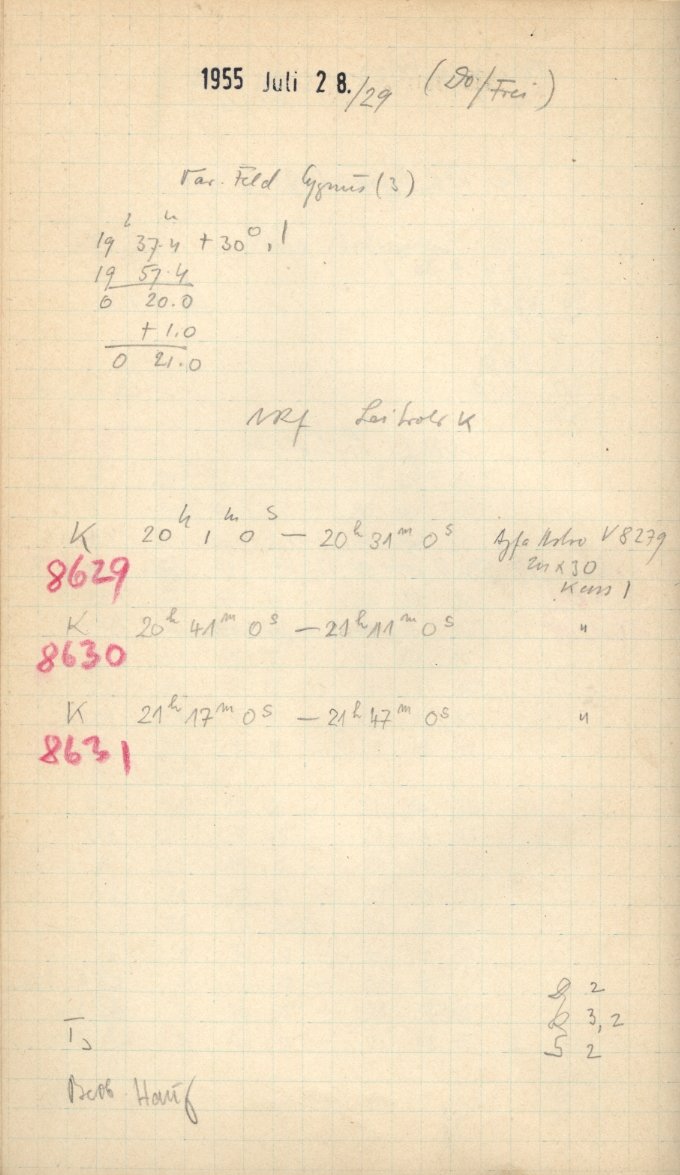 1955 Juli 28./29 (Do/Frei)
Var. Feld Cygnus (3)
h m
19 37.4 + 30°,1
19 57.4
0 20.0
+ 1.0
0 21.0
Leitrohr K
K 20h 1m 0s — 20h 31m 0s Agfa Astro V8279
8629
K 20h 41m 0s — 21h 11m 0s "
8630
K 21h 17m 0s — 21h 47m 0s "
8631
2
3,2
S 2
Beob Hauf